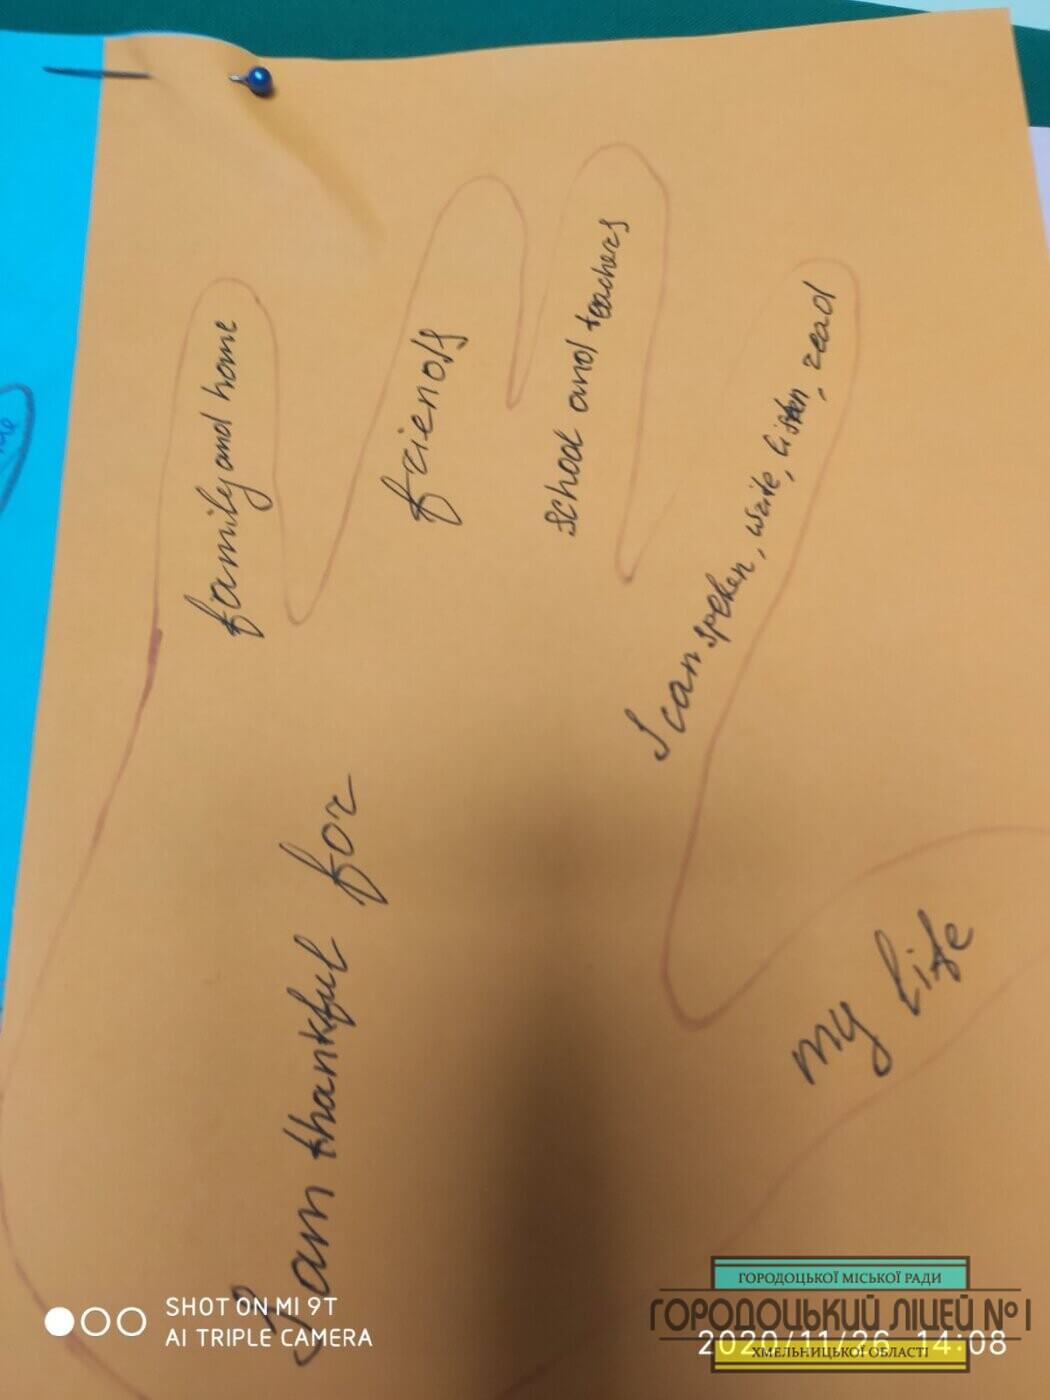 I am thankful for
family and home
friends
school and teachers
I can speken, write, listen, read
my life
SHOT ON MI 9T
AI TRIPLE CAMERA
2020/11/26 14:08
ГОРОДОЦЬКОЇ МІСЬКОЇ РАДИ
ГОРОДОЦЬКИЙ ЛІЦЕЙ №1
ХМЕЛЬНИЦЬКОЇ ОБЛАСТІ